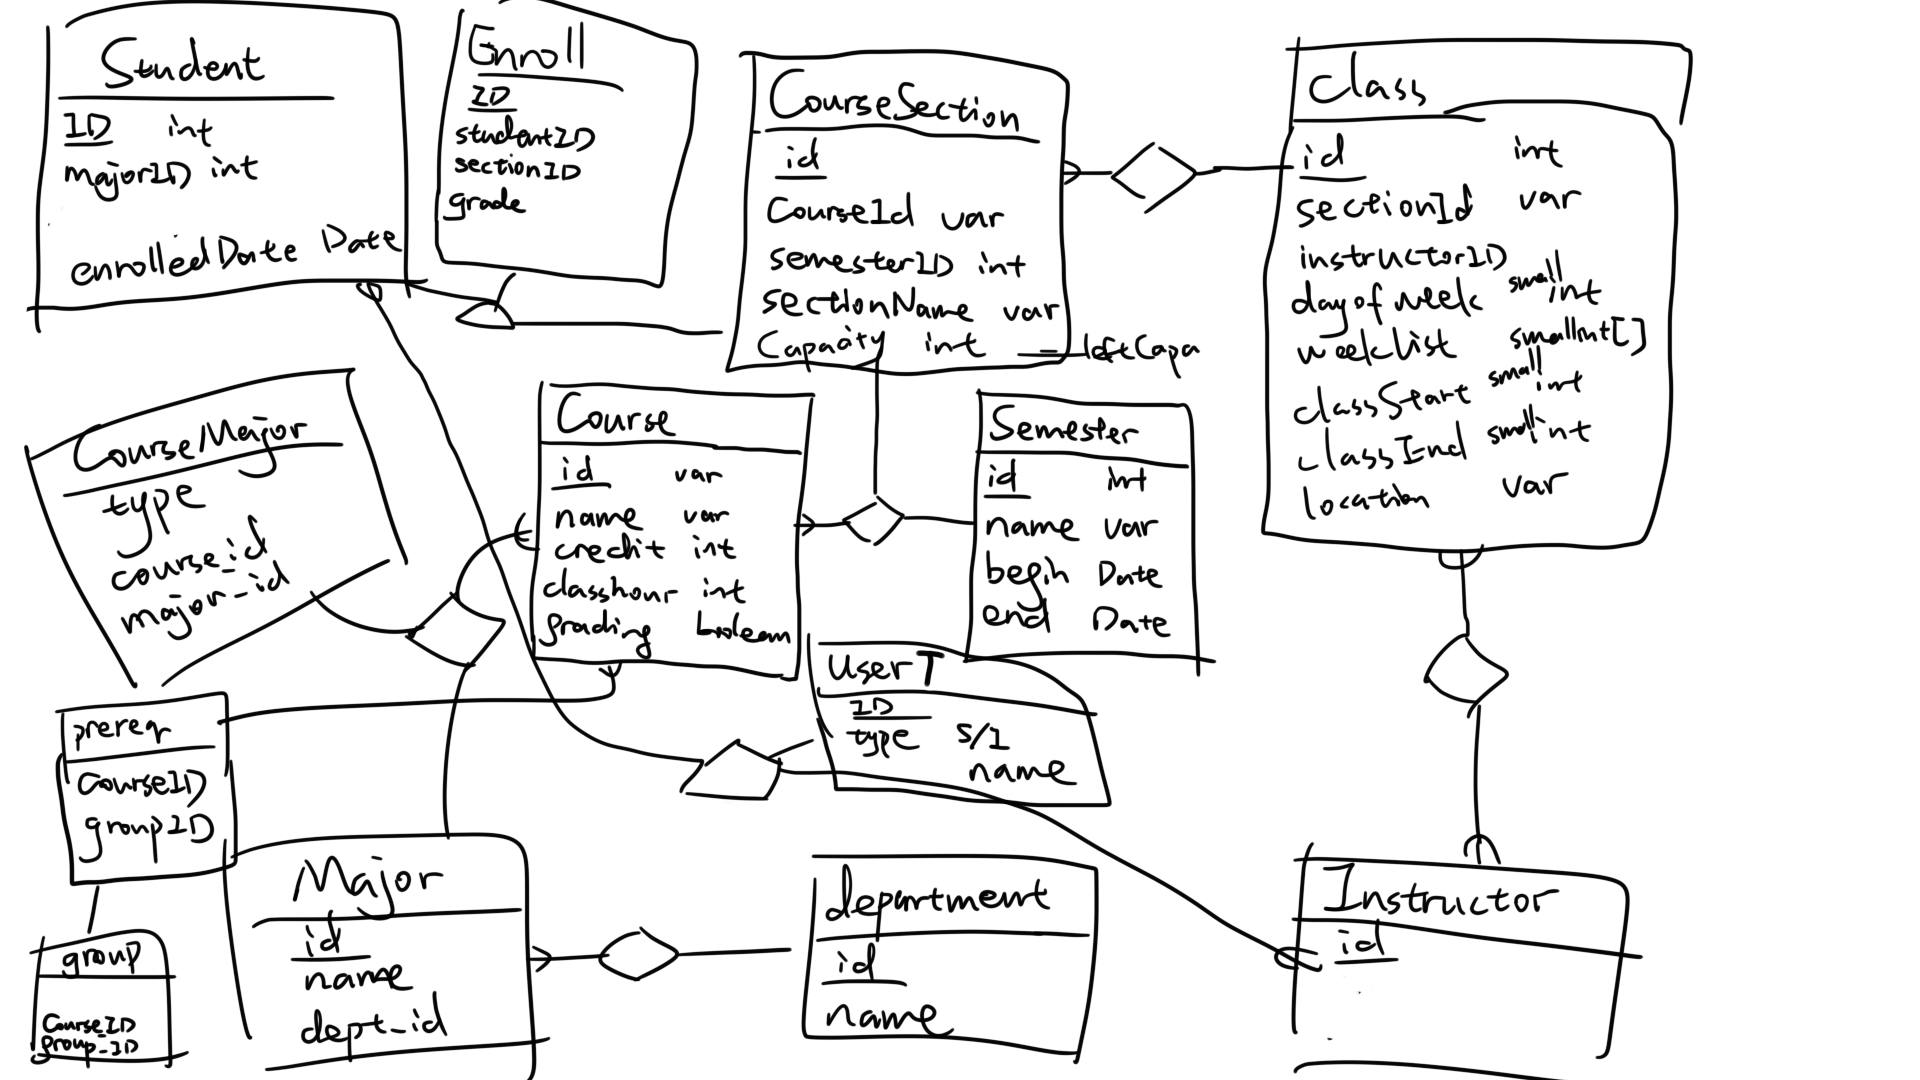 Student
ID int
majorID int
enrolledDate Date
Enroll
ID
studentID
sectionID
grade
CourseSection
id
CourseId var
semesterID int
sectionName var
Capacity int - leftCapa
class
id int
sectionId var
instructorID
dayofweek small int
weeklist smallint[]
classStart small int
classEnd small int
location var
Course/Major
type
course_id
major_id
Course
id var
name var
credit int
classhour int
grading boolean
Semester
id int
name var
begin Date
end Date
UserT
ID
type S/I
name
prereq
CourseID
groupID
group
CourseID
group_ID
Major
id
name
dept_id
department
id
name
Instructor
id